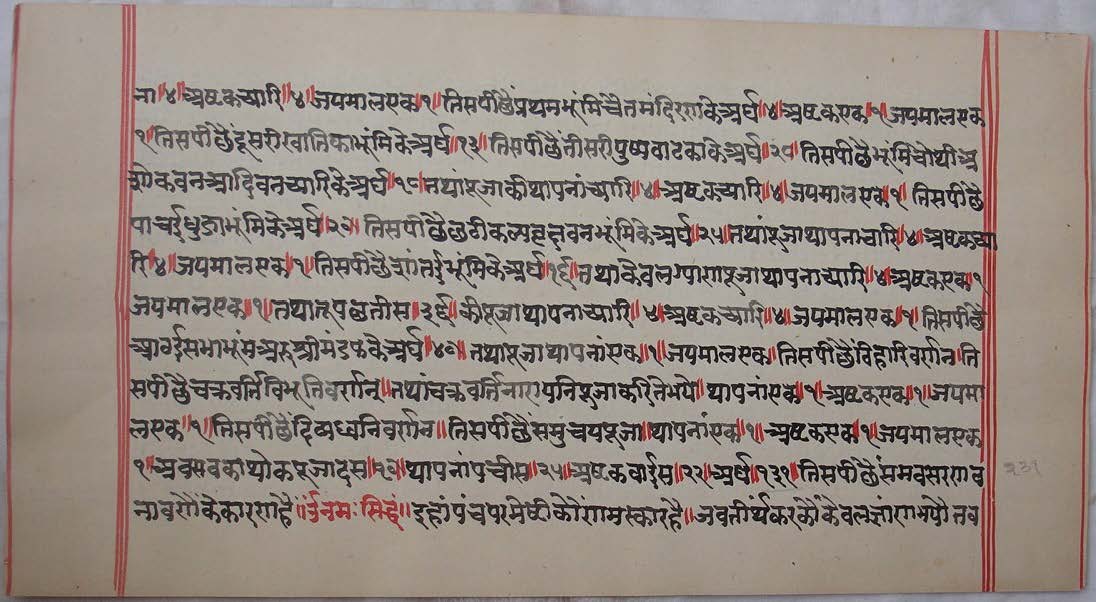 ना॥४॥अष्टकच्यारि॥४॥जयमालएक॥१॥तिसपीछैंप्रथमभूंमिचैतमंदिरगाकेअर्घ॥४॥अष्टकएक॥१॥जयमालएक
॥१॥तिसपीछैंदूसरीखातिकाभूंमिकेअर्घ॥१३॥तिसपीछैंतीसरीपुष्पवाटकाकेअर्घ॥२८॥तिसपीछैभूंमिचोथीअ
शोकवनआदिवनच्यारिकेअर्घ॥१८॥तथांपूजाकीथापनांच्यारि॥४॥अष्टकच्यारि॥४॥जयमालएक॥१॥तिसपीछैं
पाचईंधुजाभूंमिकेअर्घ॥२७॥तिसपीछैंछठीकल्पवृक्षवनभूंमिकेअर्घ॥२५॥तथांपूजाथापनाचारि॥४॥अष्टकच्या
रि॥४॥जयमालएक॥१॥तिसपीछैंभूंमिकेअर्घ॥१६॥तथाकेवलग्यांणपूजाथापनाच्यारि॥४॥अष्टकएक॥१
जयमालएक॥१॥तथातूपछतीस॥३६॥कीपूजाथापनाच्यारि॥४॥अष्टकच्यारि॥४॥जयमालएक॥१॥तिसपीछैं
सभाभूंमअरुश्रीमंडफकेअर्घ॥४७॥तथांपूजाथापनांएक॥१॥जयमालएक॥तिसपीछैंविहारिवर्गान॥ति
सपीछैंचक्रवर्तिविभूतिवर्गान॥तथांचक्रवर्तिनारायनिपूजाकरितेभये॥थापनांएक॥१॥अष्टकएक॥१॥जयमा
लएक॥१॥तिसपीछैंदिव्यध्वनिवर्गान॥तिसपीछैंसंमुचयपूजा॥थापनांएक॥१॥अष्टकएक॥१॥जयमालएक
॥१॥थोकपूजादस॥१०॥थापनांपचीस॥२५॥अष्टकवाईस॥२२॥अर्घ॥१३१॥तिसपीछैंसमवसरगाव
नावगोंकेकारगाहै॥ॐनमःसिद्धं॥इहांपंचपरमेष्टीकौंणमस्कारहै॥जवतीर्थंकरकौंकेवलज्ञांणभयौतव
२३१